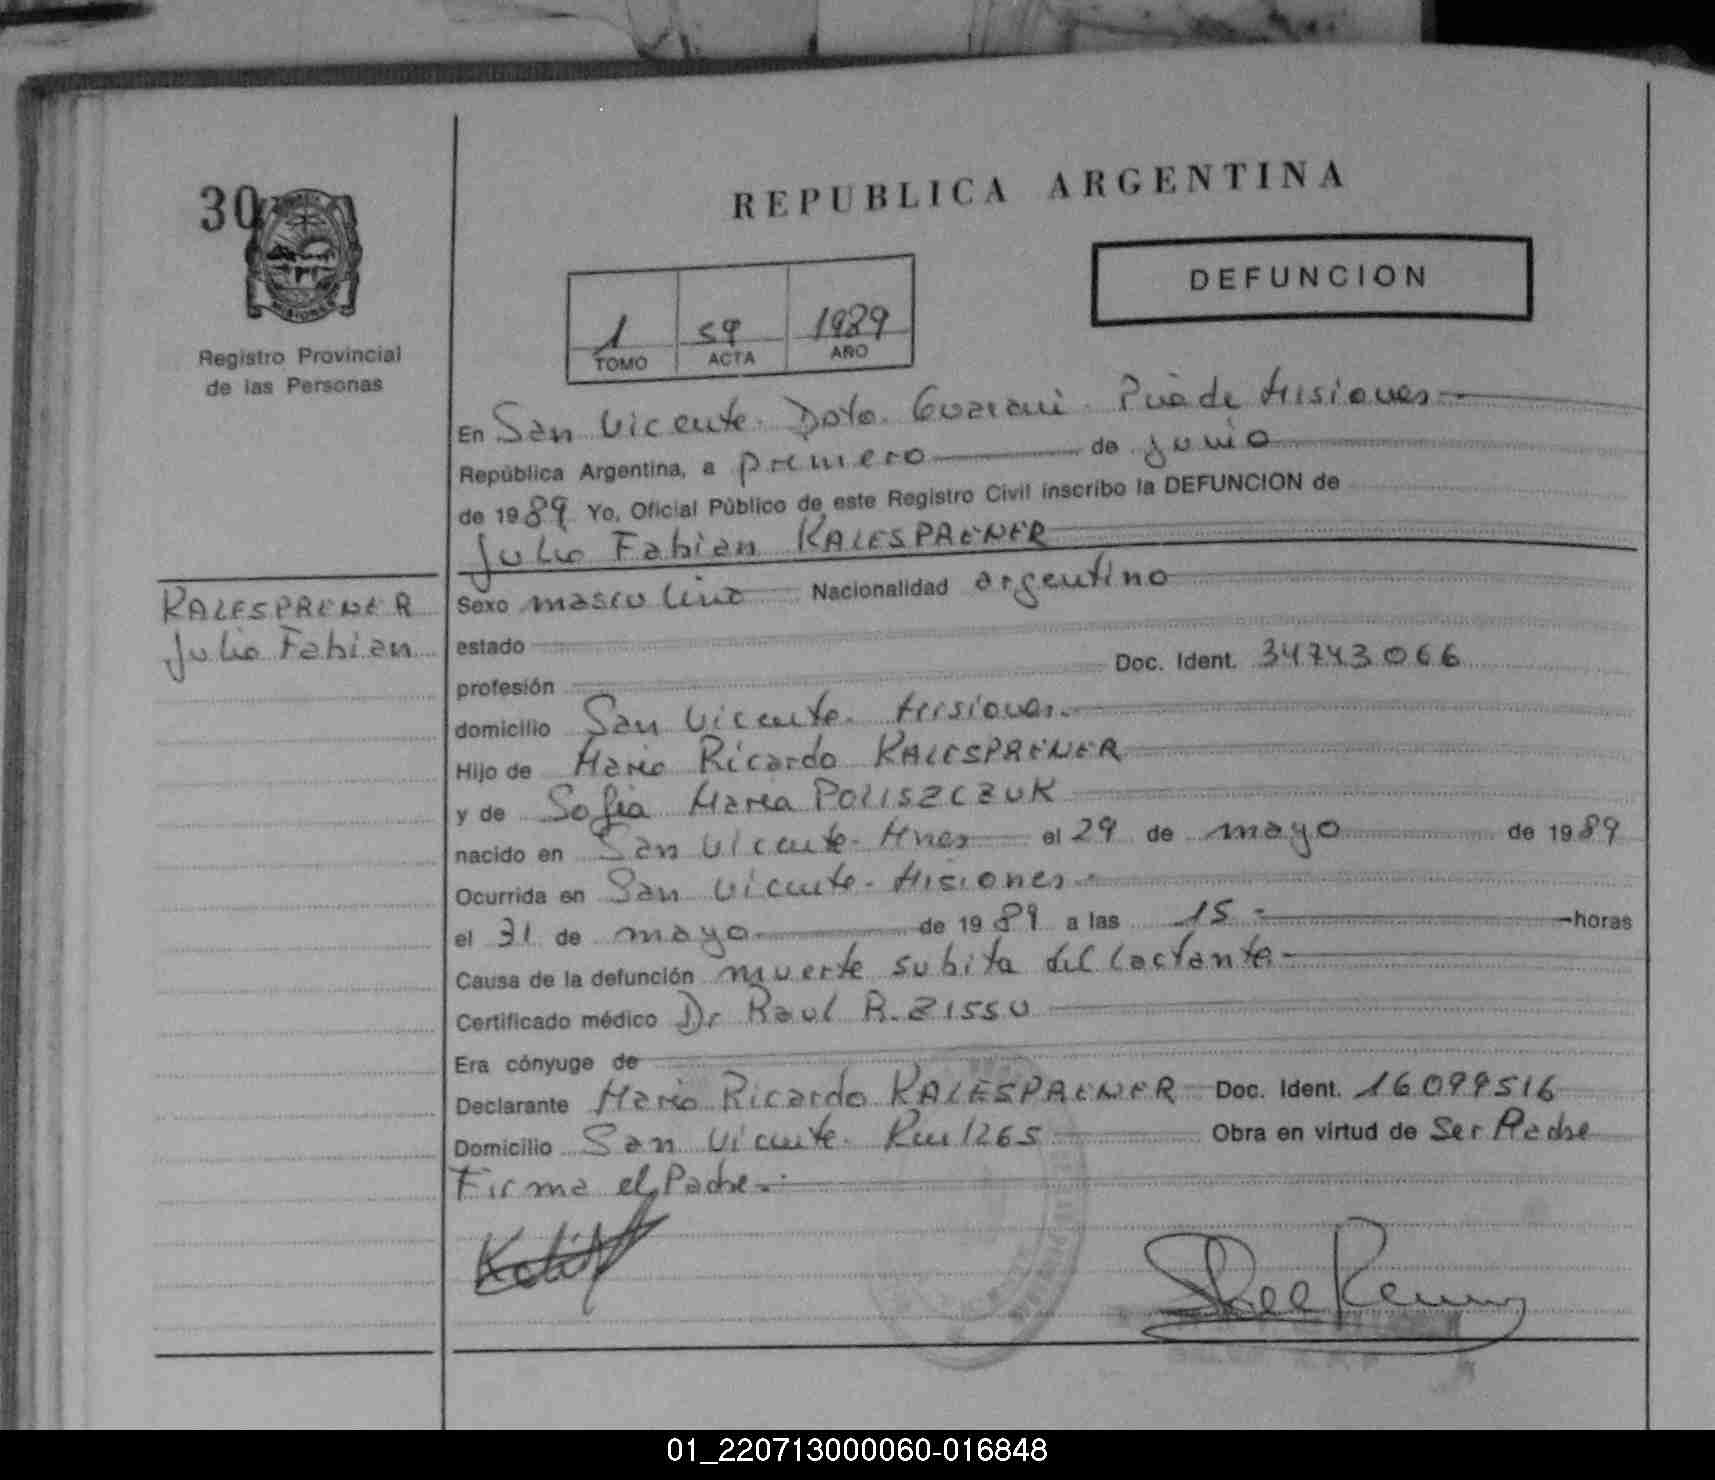 REPUBLICA ARGENTINA
30
MISIONES
Registro Provincial
de las Personas
DEFUNCION
1 59 1989
TOMO ACTA AÑO
En San Vicente. Dpto. Guarani. Pcia de Misiones
República Argentina, a primero de junio
de 1989 Yo, Oficial Público de este Registro Civil inscribo la DEFUNCION de
Julio Fabian KALESPRENER
KALESPRENER
Julio Fabian
Sexo masculino Nacionalidad argentino
estado
profesión Doc. Ident. 34743066
domicilio San Vicente. Misiones.
Hijo de Mario Ricardo KALESPRENER
y de Sofia Maria POLISZCZUK
nacido en San Vicente - Mnes el 29 de mayo de 1989
Ocurrida en San Vicente - Misiones -
el 31 de mayo de 1989 a las 15 - horas
Causa de la defunción muerte subita del lactante -
Certificado médico Dr Raul R. ZISSU
Era cónyuge de
Declarante Mario Ricardo KALESPRENER Doc. Ident. 16099516
Domicilio San Vicente. Km 1265 Obra en virtud de Ser Padre
Firma el Padre.
01_220713000060-016848